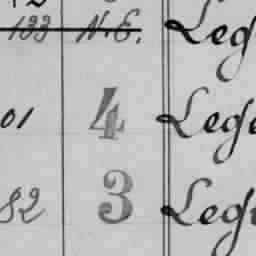 133 N.E. Leg
01 4 Lege
82 3 Lege